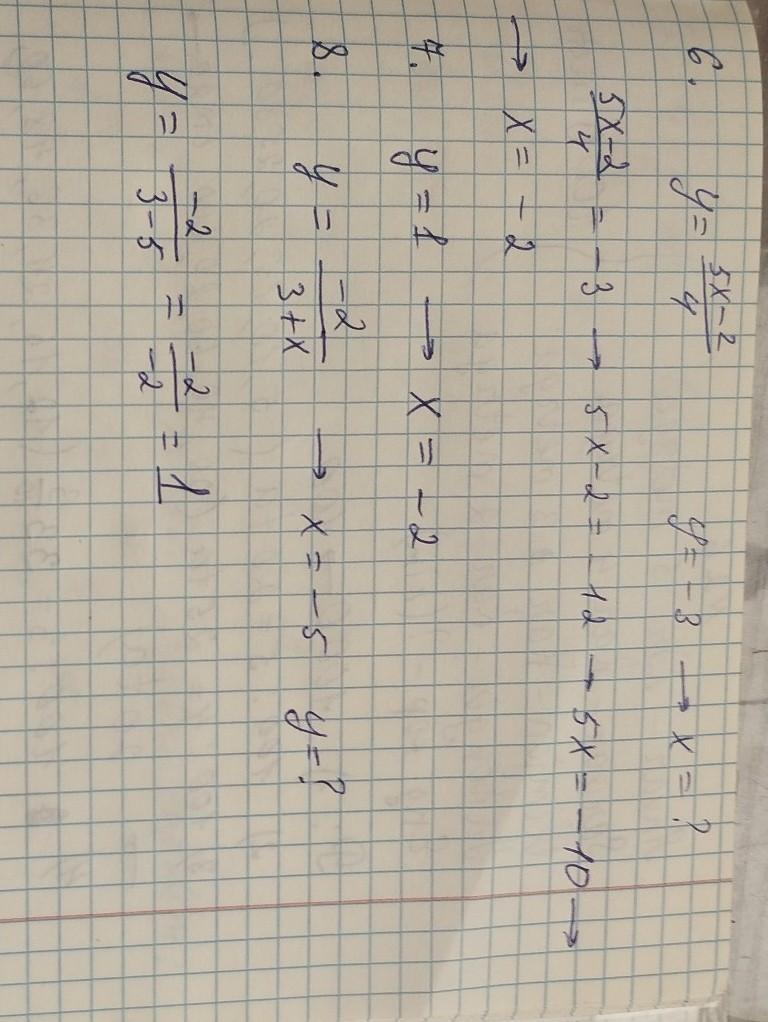 6. y = (5x-2)/4   y = -3 → x = ?
(5x-2)/4 = -3 → 5x-2 = -12 → 5x = -10 →
→ x = -2
7. y = 1 → x = -2
8. y = -2/(3+x) → x = -5 y = ?
y = -2/(3-5) = -2/-2 = 1